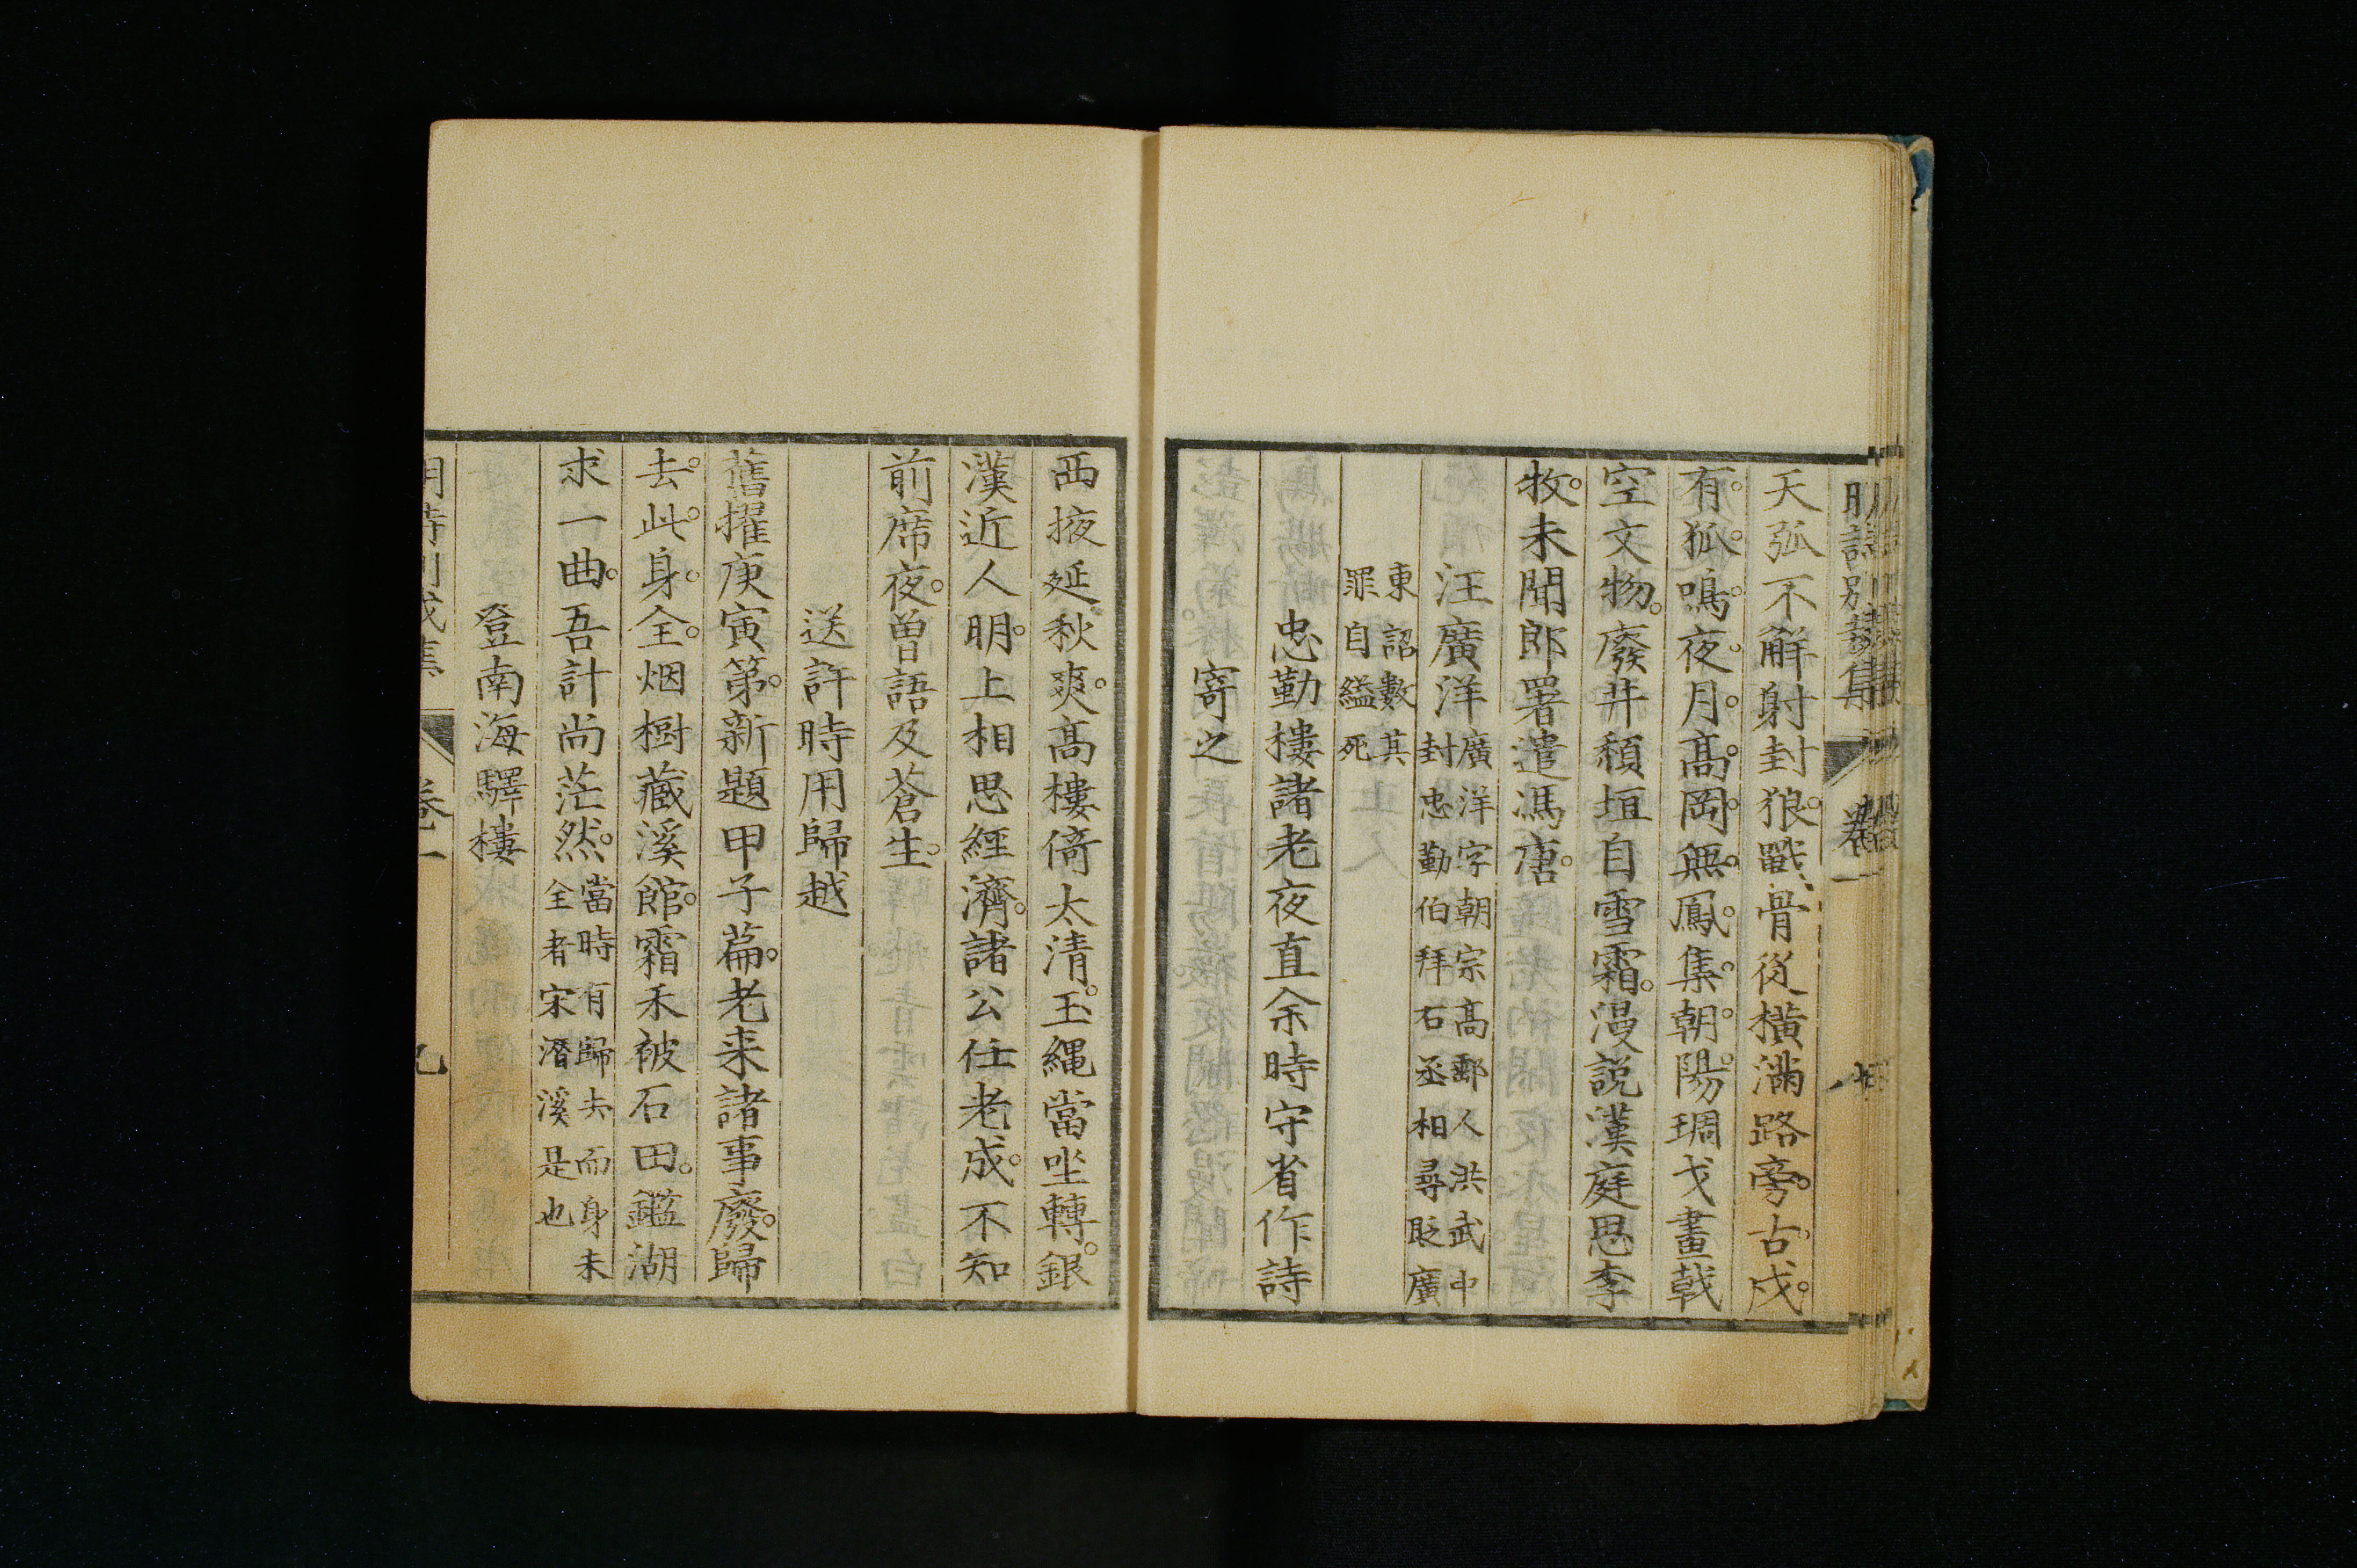 天弧不解射封狼戰骨從橫滿路旁古戍
有狐鳴夜月髙岡無鳳集朝陽琱戈畫戟
空文物廢井頽垣自雪霜漫説漢庭思李
牧未聞郎署遣馮唐
汪廣洋
廣洋字朝宗髙郵人洪武中
封忠勤伯拜右丞相尋貶廣
東詔數其
罪自縊死
忠勤樓諸老夜直余時守省作詩
寄之
西掖延秋爽髙樓倚太清玉䋲當坐轉銀
漢近人明上相思經濟諸公任老成不知
前席夜曽語及蒼生
送許時用歸越
舊擢庚寅第新題甲子篇老来諸事廢歸
去此身全烟樹藏溪館霜禾被石田鑑湖
求一曲吾計尚茫然
當時有歸去而身未
全者宋潛溪是也
登南海驛樓
卷一
九